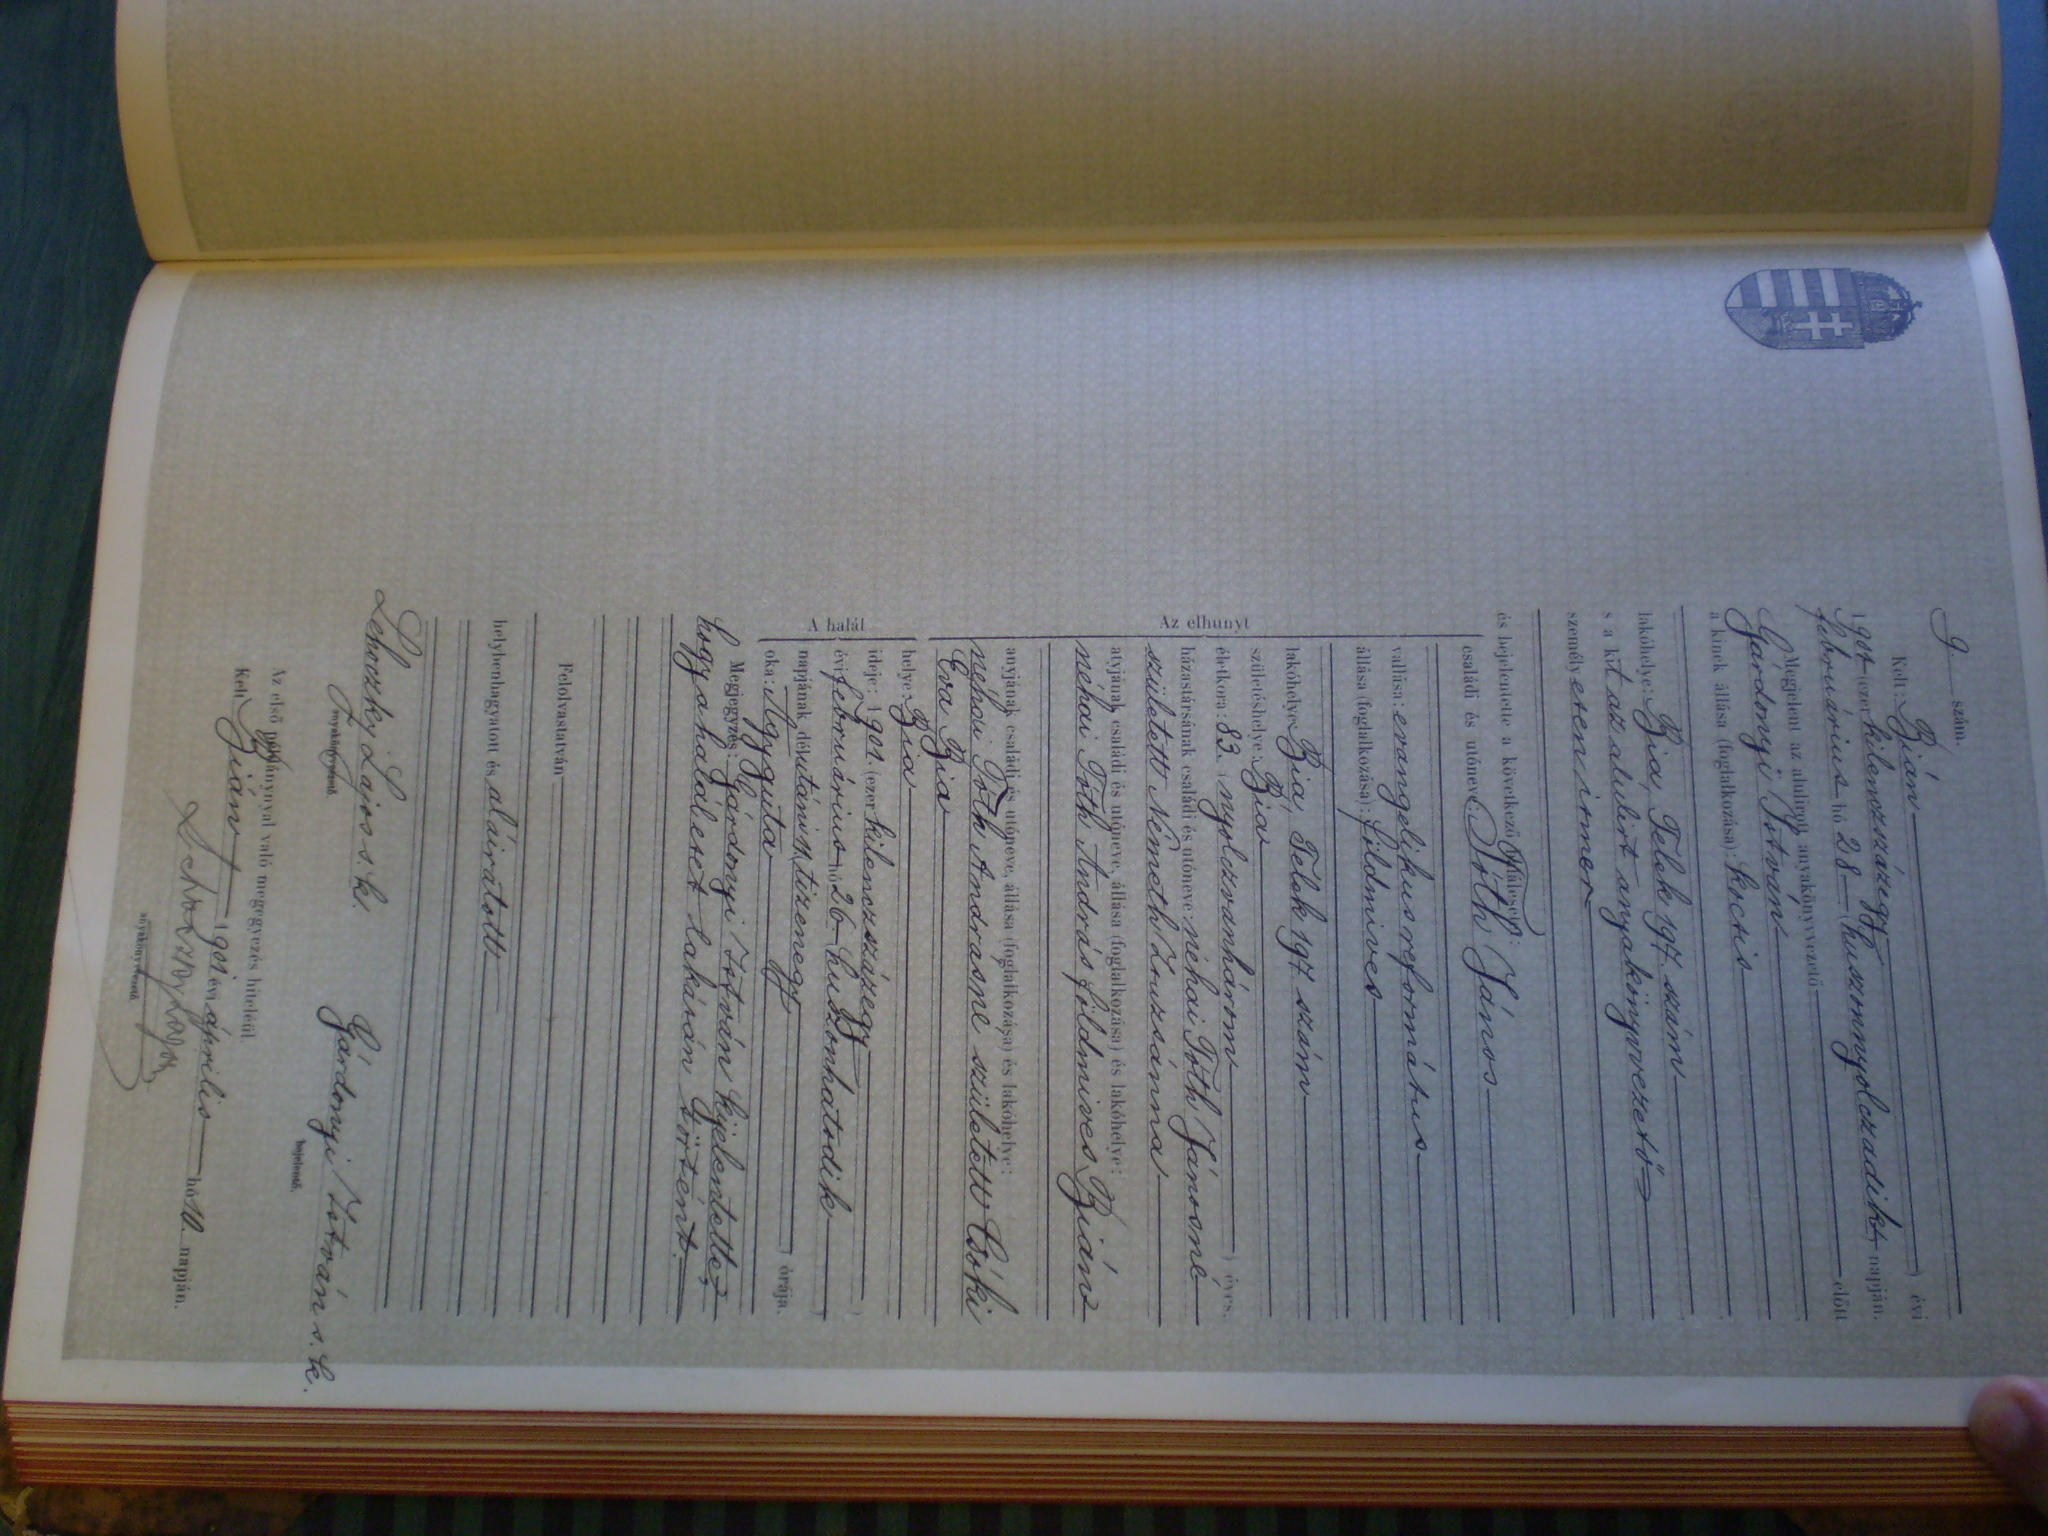 9. szám.
Kelt: Bián
1901 (ezerkilenczszázegy) évi
február​ius hó 28 (huszonnyolczadik) napján.
Megjelent az alulirott anyakönyvvezető előtt
Gárdonyi István
a kinek állása (foglalkozása): kocsis
lakóhelye: Bia, Telek 197. szám
s a kit az alulirt anyakönyvvezető
személyesen ismer
és bejelentette a következő halálesetet:
családi és utóneve: Tóth János
vallása: evangelikus református
állása (foglalkozása): földmives
lakóhelye: Bia, Telek 197 szám
születéshelye: Bia
életkora: 83. (nyolczvanhárom) éves.
házastársának családi és utóneve: néhai Tóth Jánosné
született Németh Zsuzsánna
atyjának családi és utóneve, állása (foglalkozása) és lakóhelye:
néhai Tóth András földmives Bián
anyjának családi és utóneve, állása (foglalkozása) és lakóhelye:
néhai Tóth Andrásné született Csóki
Éva Bia
helye: Bia
ideje: 1901. (ezerkilenczszázegy)
évi februárius hó 26 (huszonhatodik)
napjának délutáni 11. (tizenegy) órája.
oka: Aggguta
Megjegyzés: Gárdonyi István kijelentette,
hogy a haláleset lakásán történt.
Az elhunyt
A halál
Felolvastatván
helybenhagyatott és aláiratott
Lehoczky Lajos s. k.
anyakönyvvezető.
Gárdonyi István s. k.
bejelentő.
Az első példánynyal való megegyezés hiteléül.
Kelt Bián 1901 évi április hó 10. napján.
Lehoczky Lajos
anyakönyvvezető.